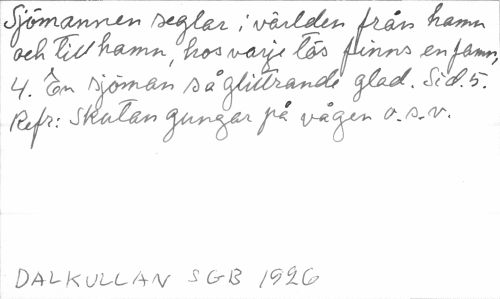 Sjömannen seglar i världen från hamn
och till hamn, hos varje tös finns en famn,
4. En sjöman så glittrande glad. Sid. 5.
Refr: Skutan gungar på vågen o.s.v.
DALKULLAN SGB 1926